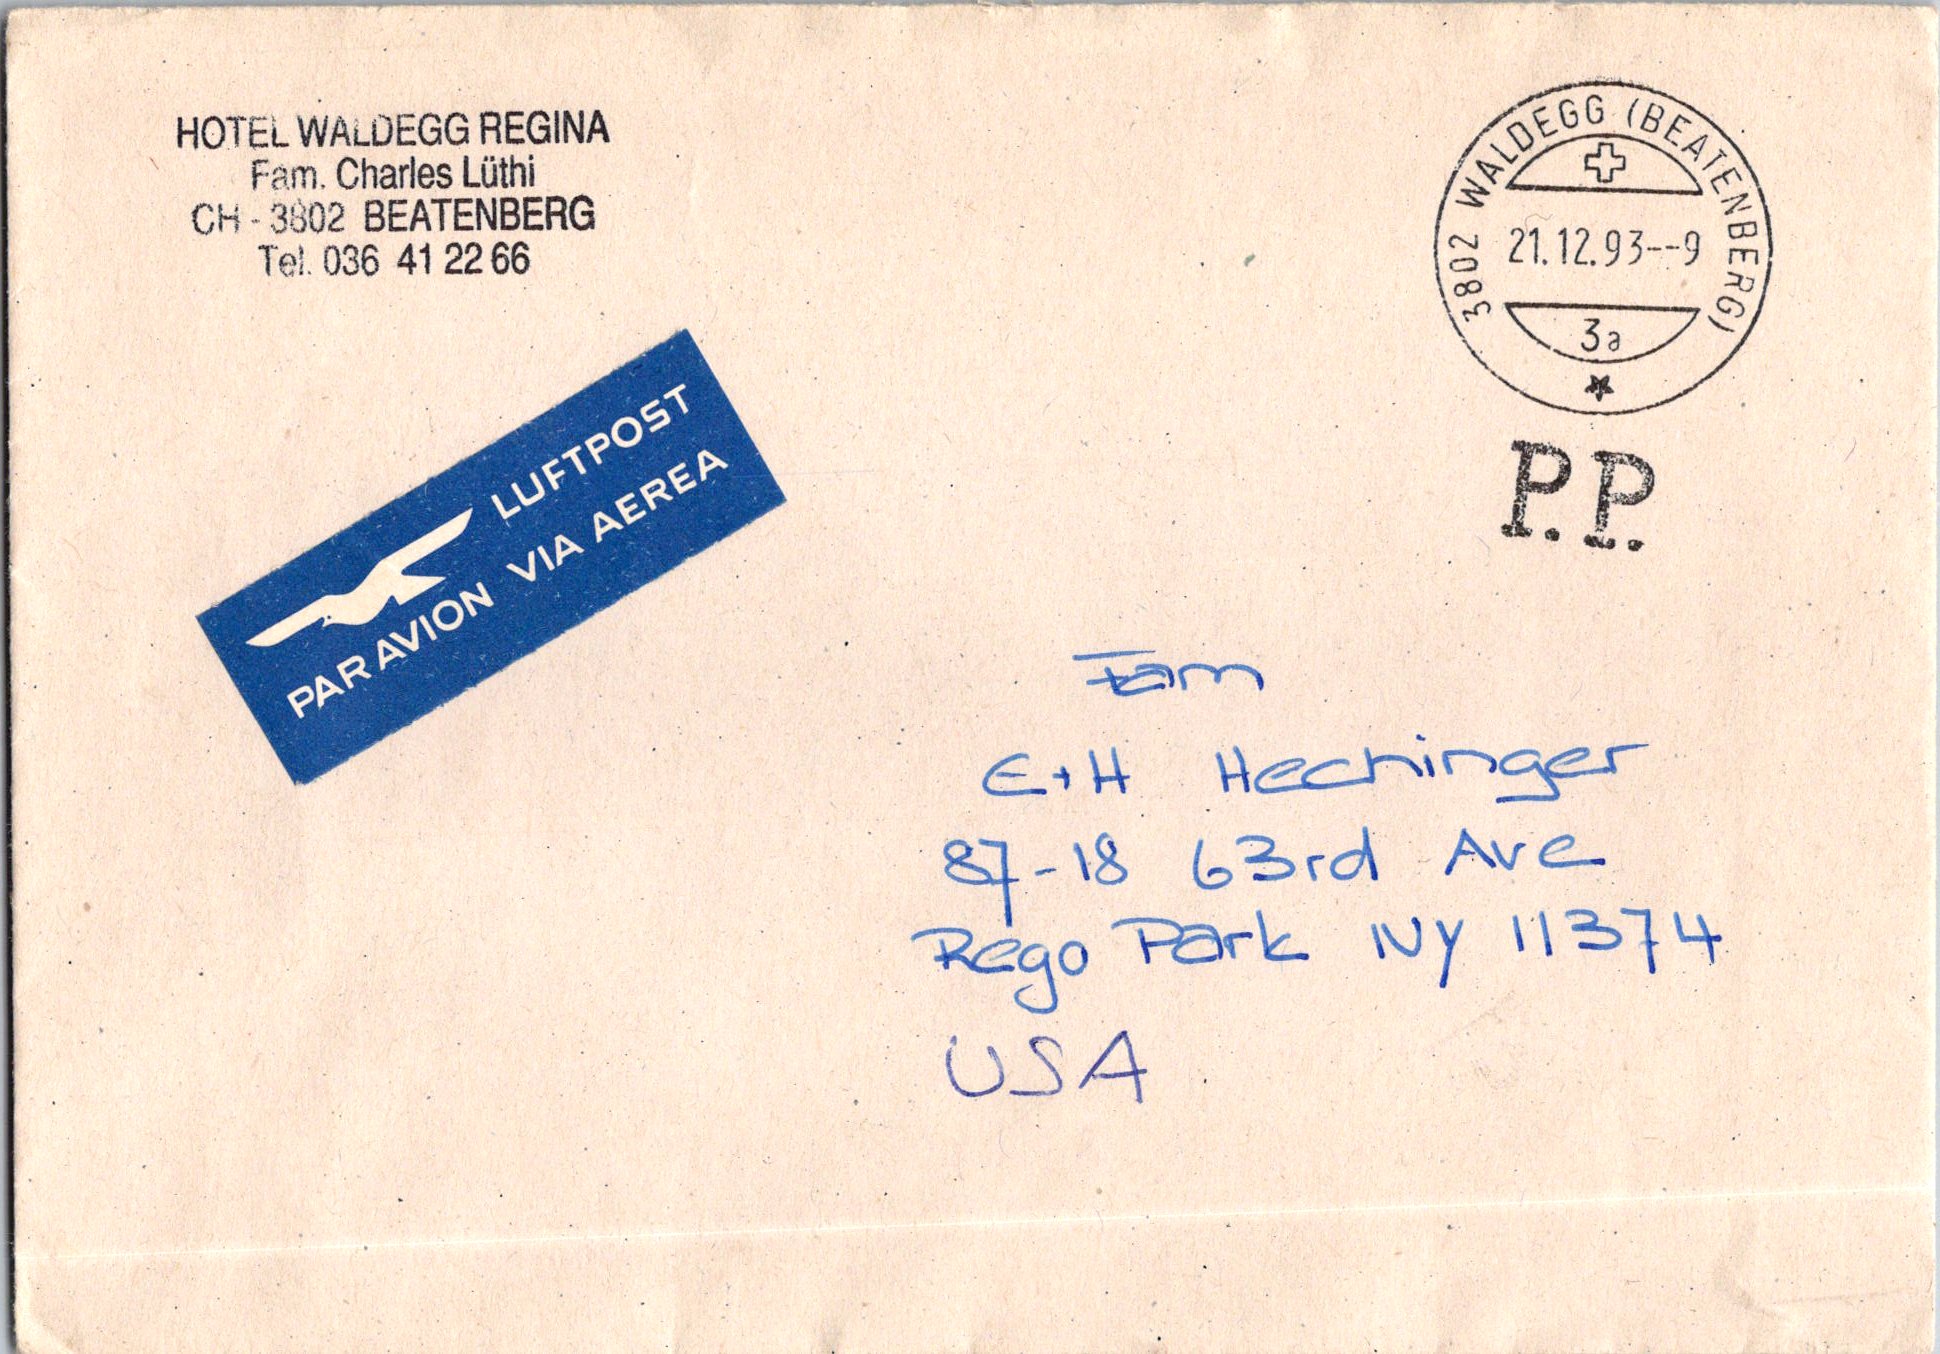 HOTEL WALDEGG REGINA
Fam. Charles Lüthi
CH - 3802 BEATENBERG
Tel. 036 41 22 66
3802 WALDEGG (BEATENBERG)
21.12.93--9
3a
P.P.
LUFTPOST
PAR AVION VIA AEREA
Fam
E+H Hechinger
87-18 63rd Ave
Rego Park NY 11374
USA